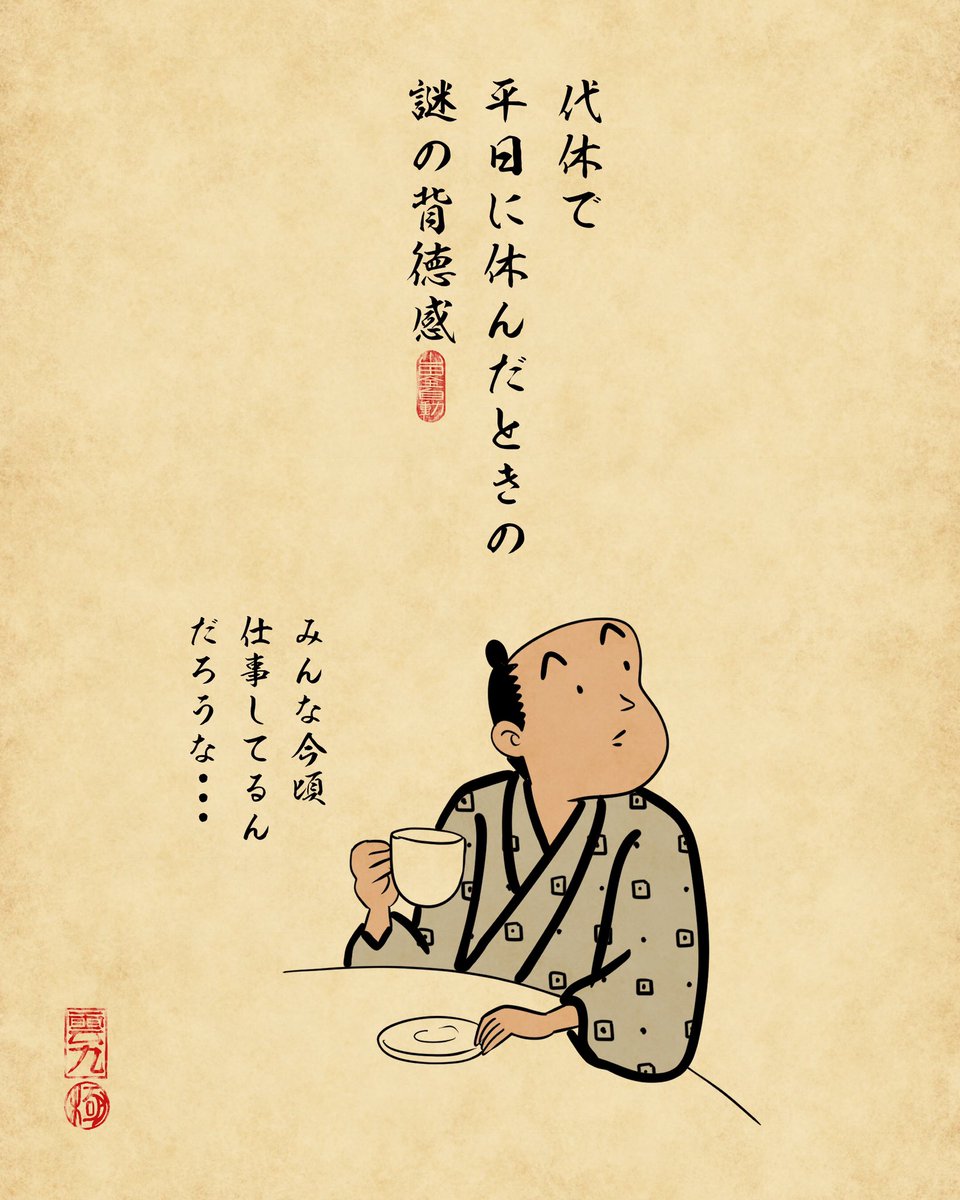 代休で
平日に休んだときの
謎の背徳感
みんな今頃
仕事してるん
だろうな・・・